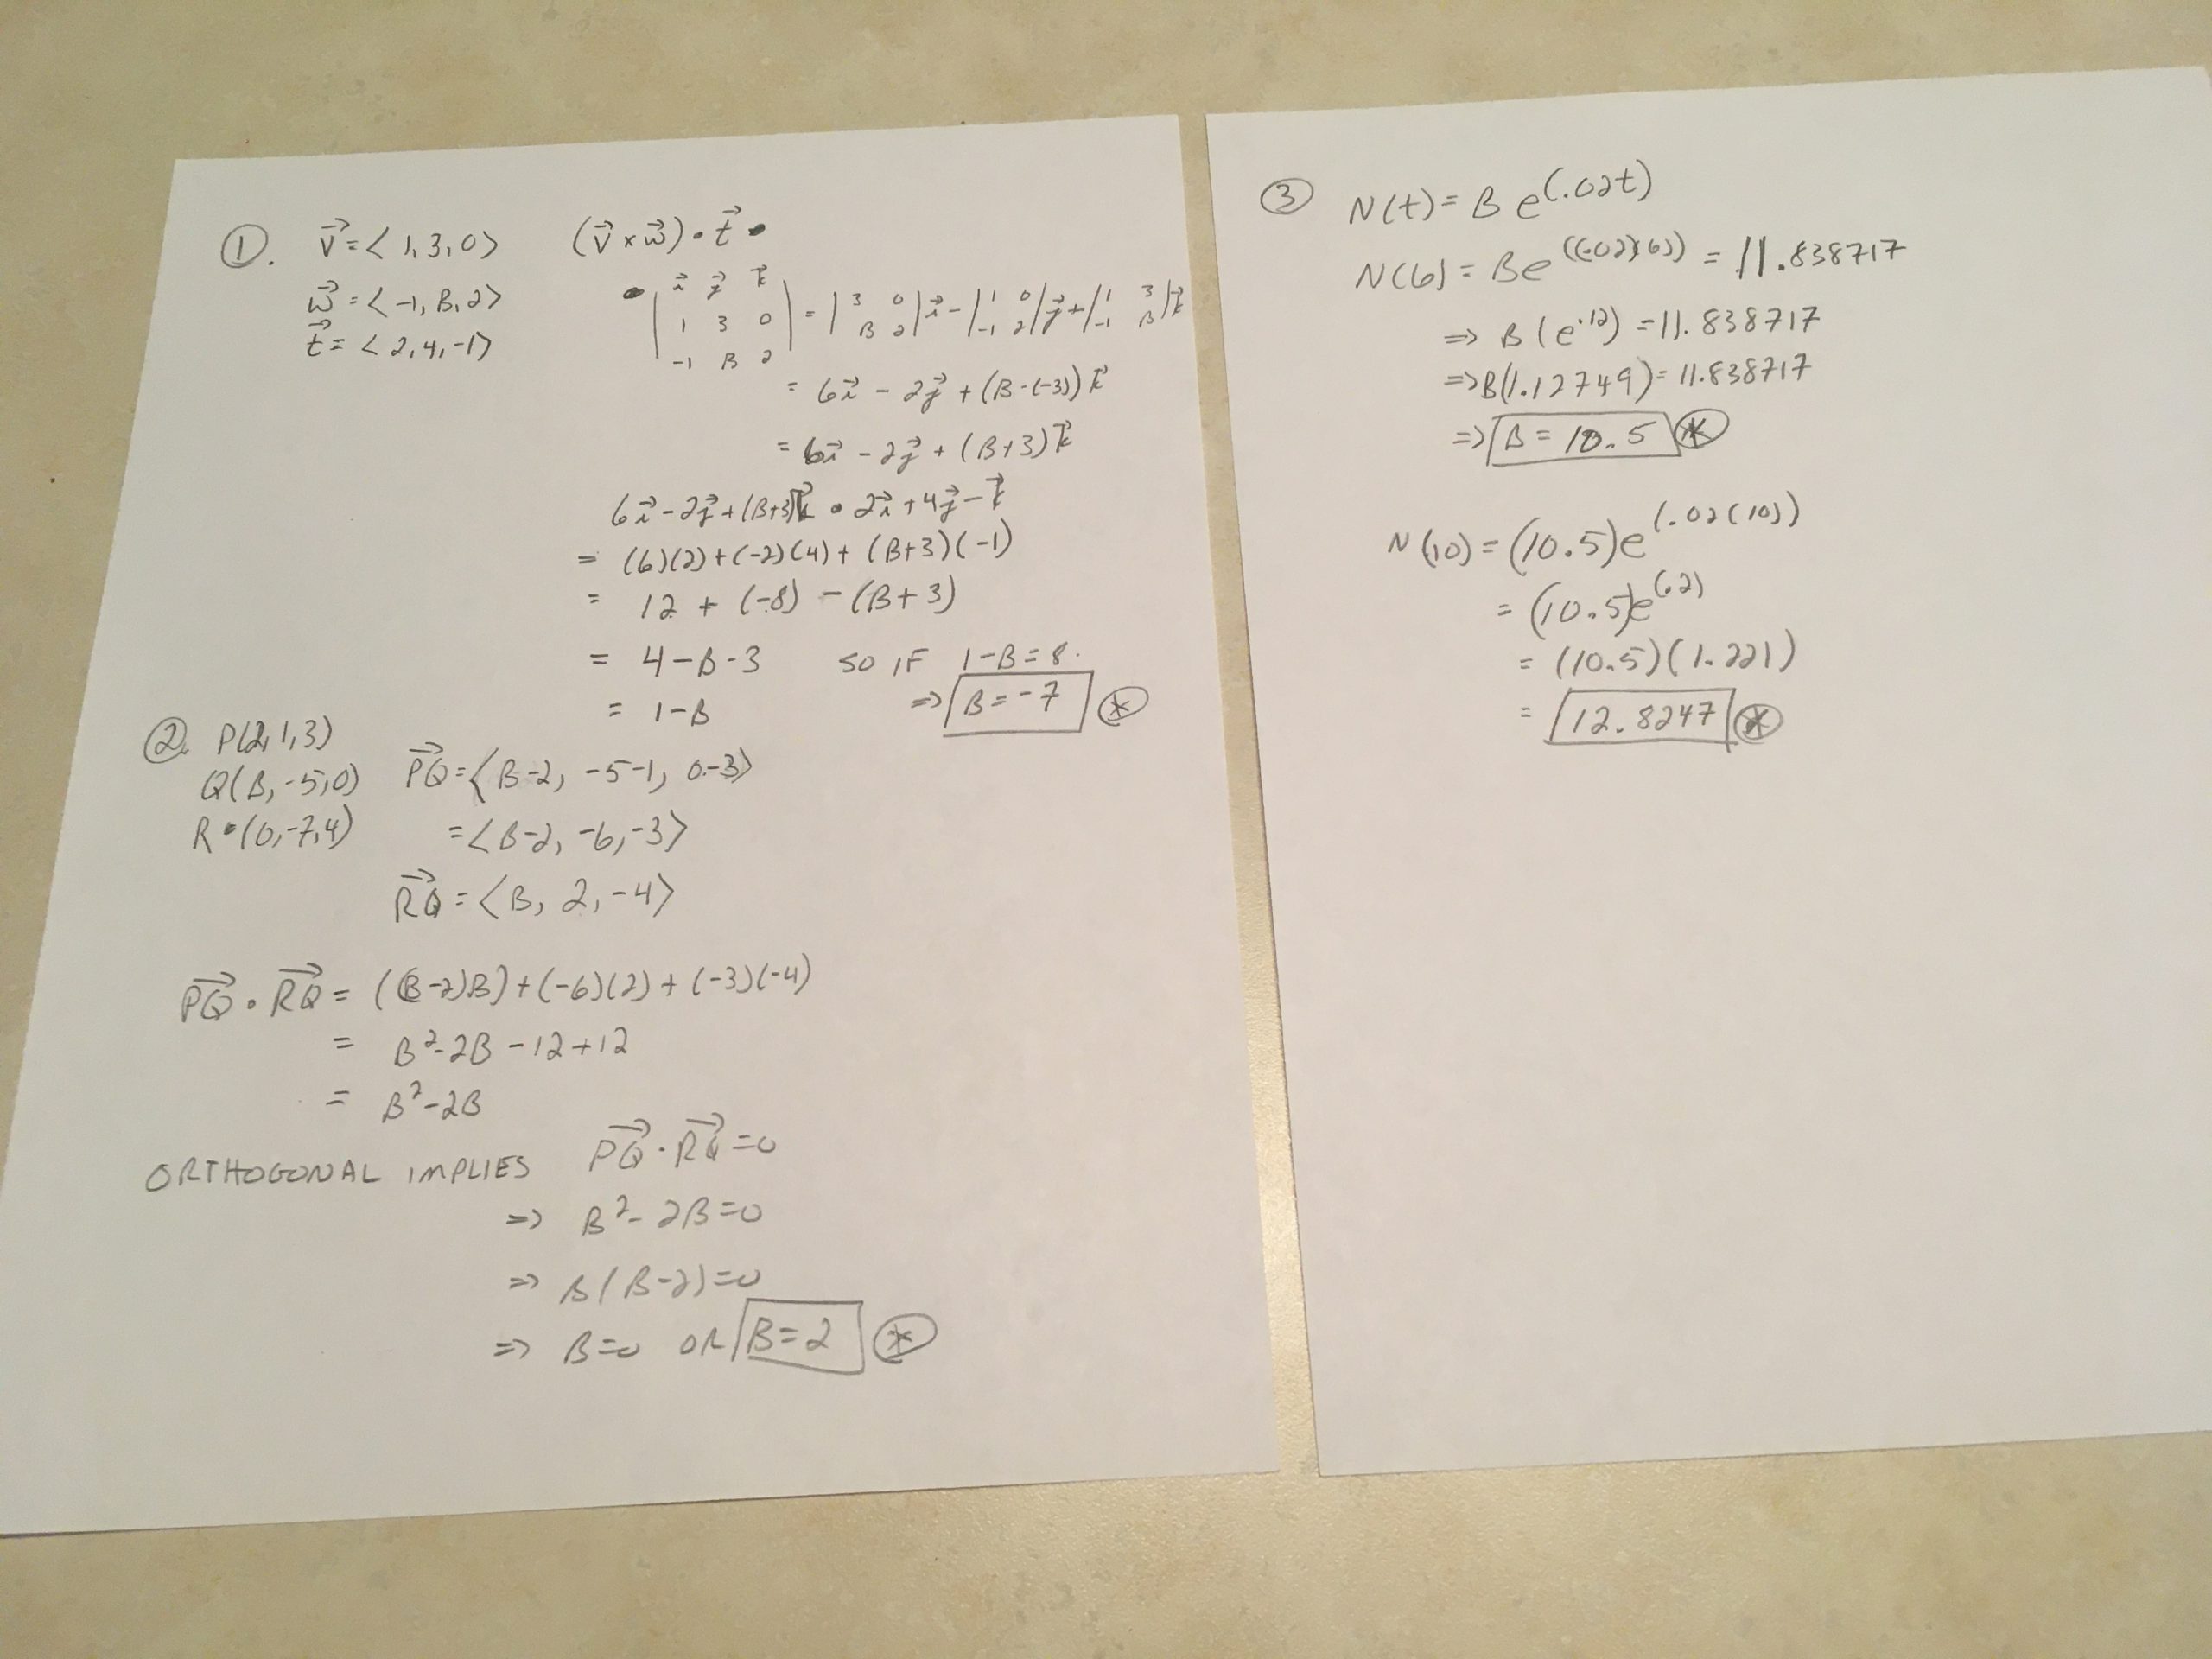 ①. v⃗ = < 1, 3, 0> (v⃗ × w⃗) • t⃗
w⃗ = < -1, B, 2>
t⃗ = < 2, 4, -1>
| i⃗ j⃗ k⃗ |
| 1 3 0 | = | 3 0 | i⃗ - | 1 0 | j⃗ + | 1 3 | k⃗
| -1 B 2 | | B 2 | | -1 2 | | -1 B |
= 6i⃗ - 2j⃗ + (B-(-3)) k⃗
= 6i⃗ - 2j⃗ + (B+3) k⃗
6i⃗ - 2j⃗ + (B+3)k⃗ • 2i⃗ + 4j⃗ - k⃗
= (6)(2)+(-2)(4)+(B+3)(-1)
= 12 + (-8) - (B+3)
= 4-B-3 SO IF 1-B=8.
= 1-B => B=-7 *
②. P(2,1,3)
Q(B,-5,0) PQ⃗ = < B-2, -5-1, 0-3>
R(0,-7,4) = < B-2, -6, -3>
RQ⃗ = < B, 2, -4>
PQ⃗ • RQ⃗ = ((B-2)B)+(-6)(2)+(-3)(-4)
= B²-2B-12+12
= B²-2B
ORTHOGONAL IMPLIES PQ⃗ · RQ⃗ =0
=> B²-2B=0
=> B(B-2)=0
=> B=0 OR B=2 *
③ N(t)= B e^(.02t)
N(6) = Be^((.02)(6)) = 11.838717
=> B(e^.12) = 11.838717
=> B(1.12749) = 11.838717
=> B = 10.5 *
N(10) = (10.5)e^(.02(10))
= (10.5)e^(.2)
= (10.5)(1.221)
= 12.8247 *